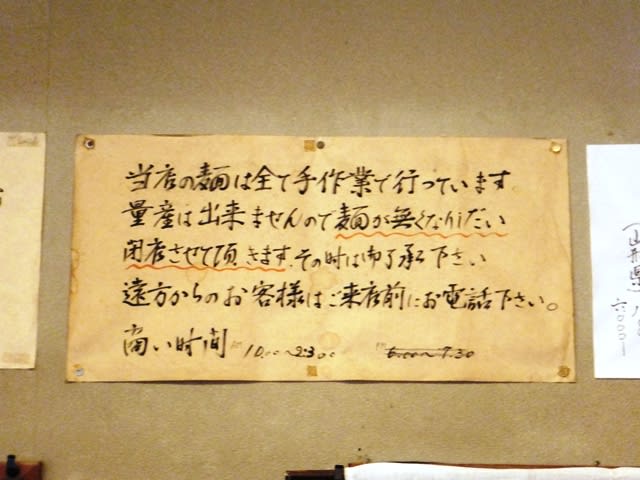 当店の麺は全て手作業で行っています。
量産は出来ませんので麺が無くなりしだい
閉店させて頂きます、その時は御了承下さい
遠方からのお客様はご来店前にお電話下さい。
商い時間 AM 10.00〜2:30 PM 5:00〜7.30
(山形県)